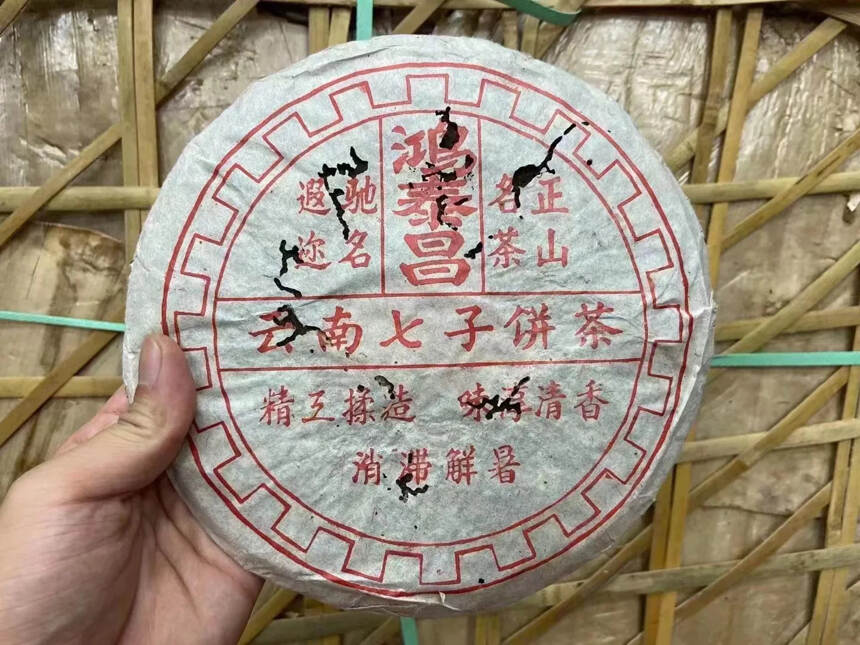 鸿泰昌
正山
名茶
驰名
遐迩
云南七子饼茶
精工揉造 味清香
消滞解暑